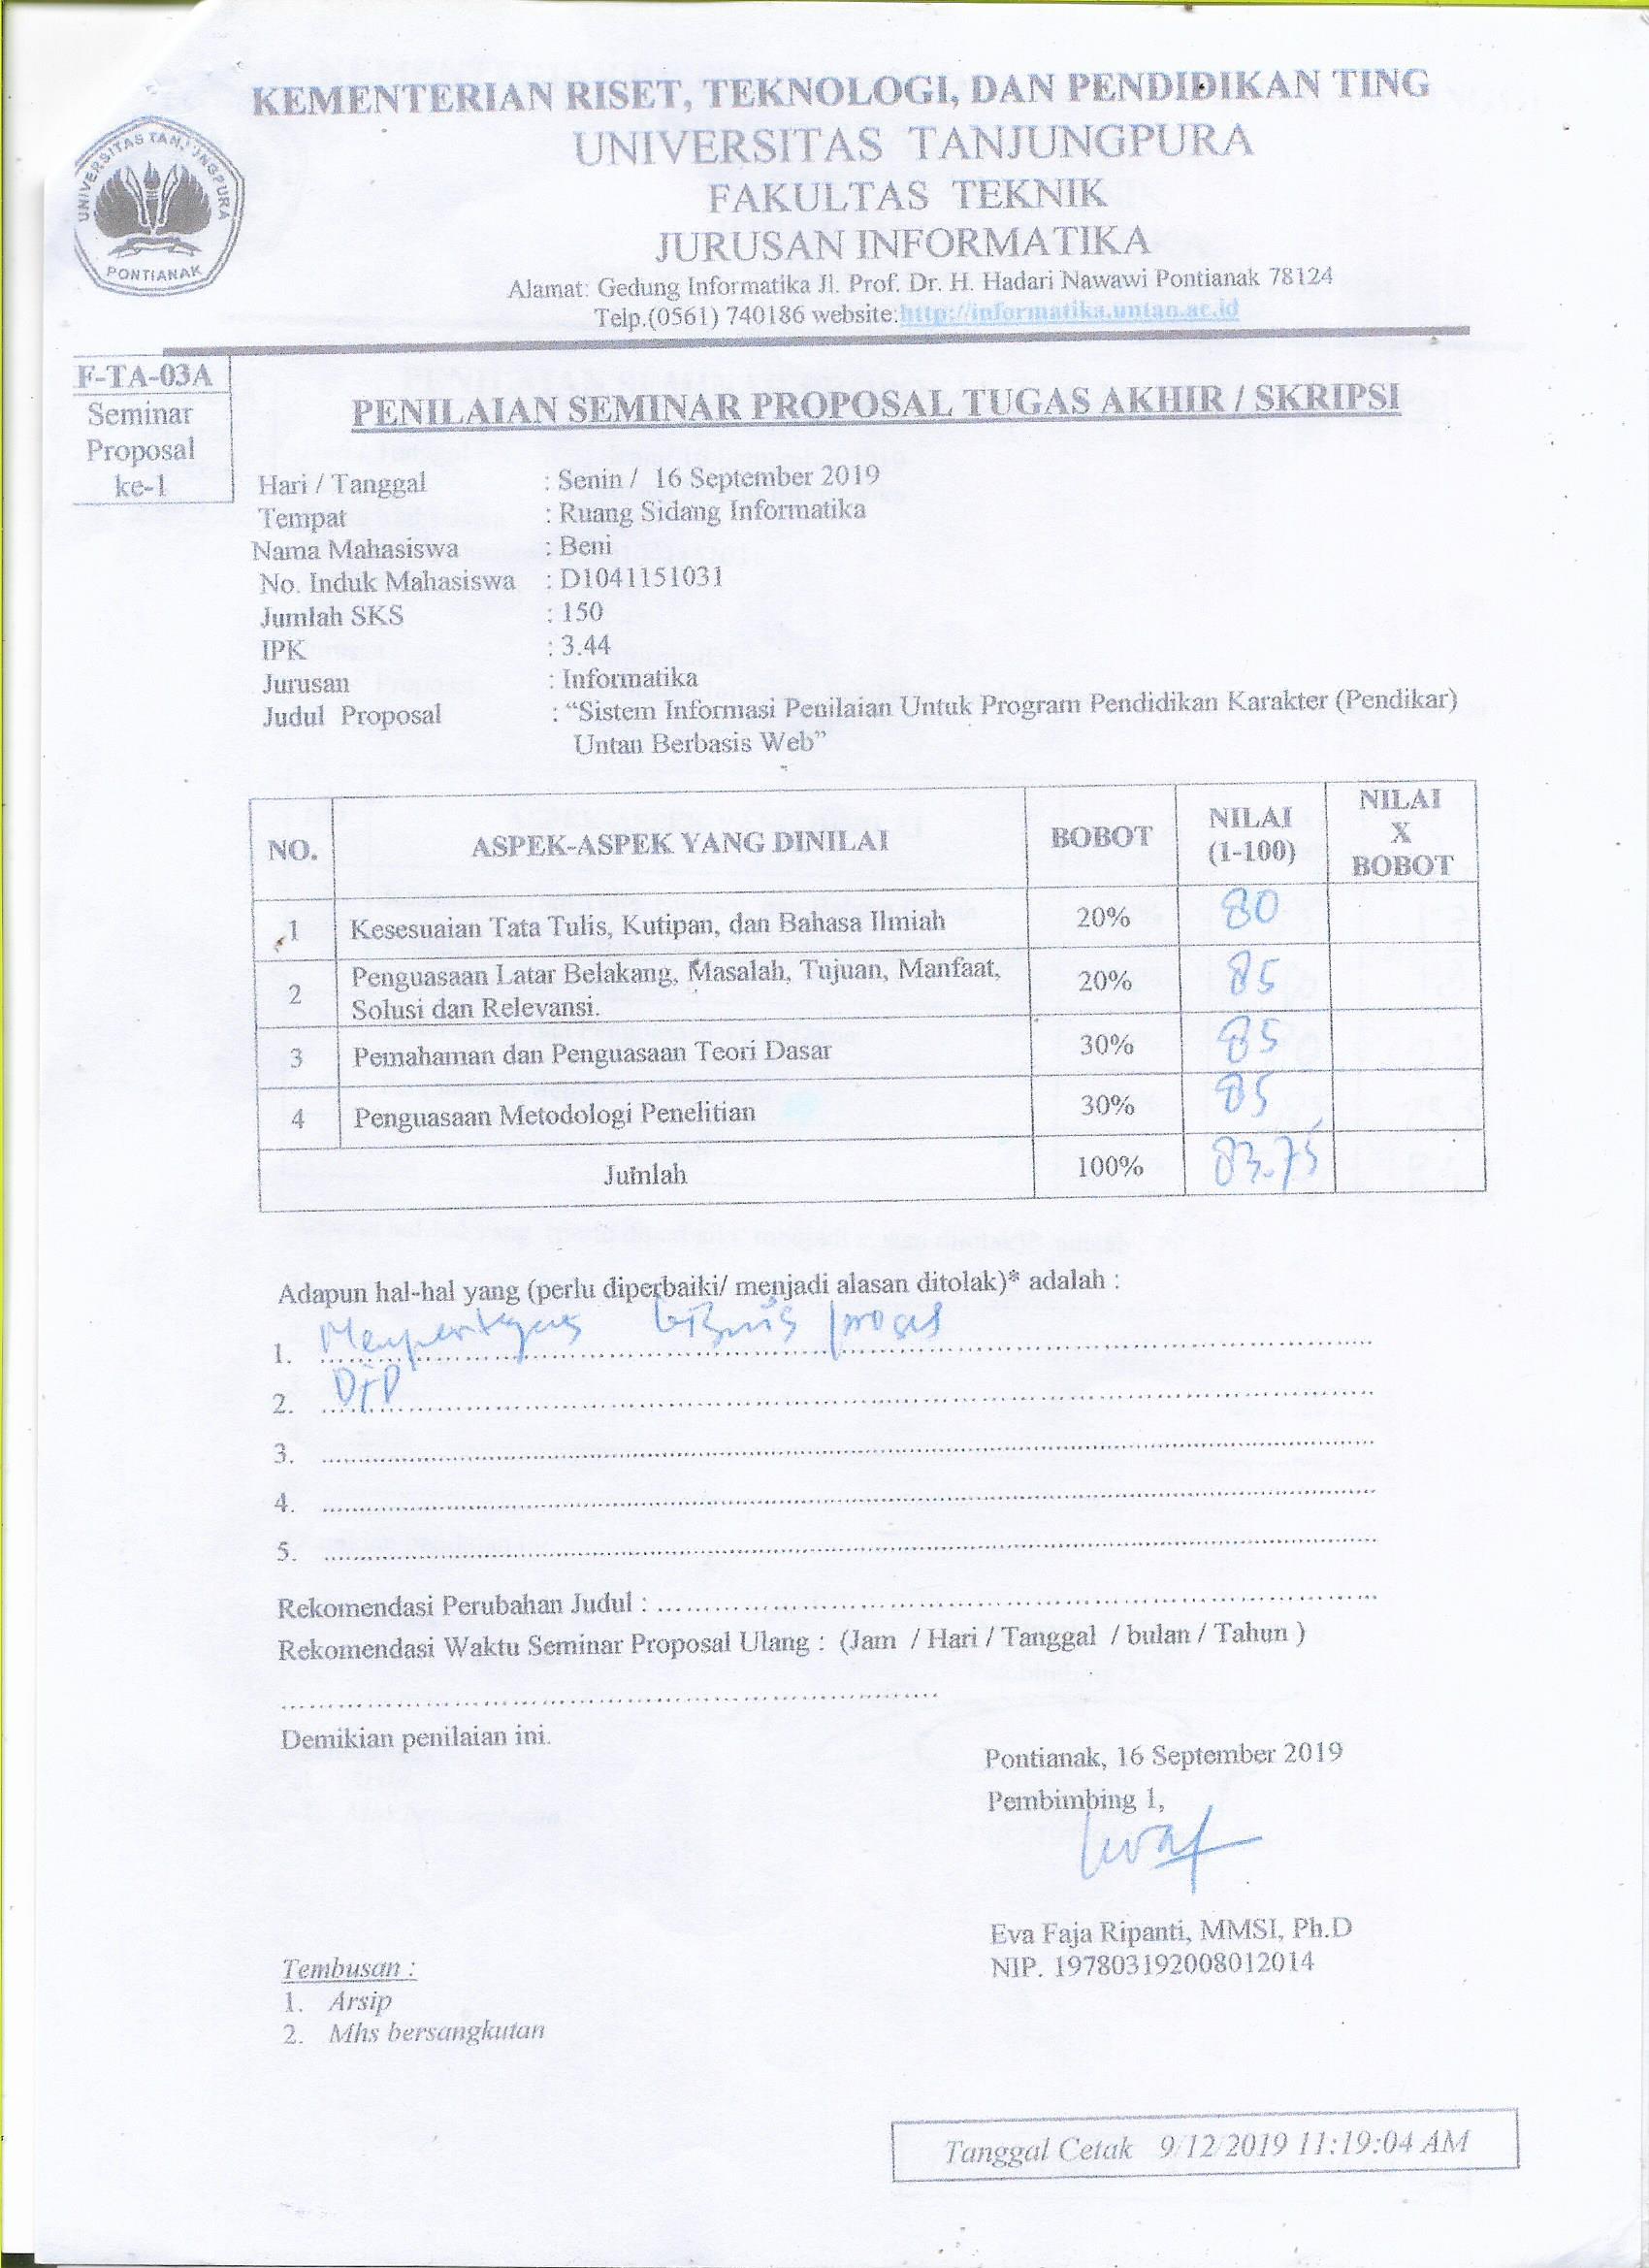 KEMENTERIAN RISET, TEKNOLOGI, DAN PENDIDIKAN TING
UNIVERSITAS TANJUNGPURA
FAKULTAS TEKNIK
JURUSAN INFORMATIKA
Alamat: Gedung Informatika Jl. Prof. Dr. H. Hadari Nawawi Pontianak 78124
Telp.(0561) 740186 website:http://informatika.untan.ac.id
UNIVERSITAS TANJUNGPURA
PONTIANAK
F-TA-03A
Seminar
Proposal
ke-1
PENILAIAN SEMINAR PROPOSAL TUGAS AKHIR / SKRIPSI
Hari / Tanggal : Senin / 16 September 2019
Tempat : Ruang Sidang Informatika
Nama Mahasiswa : Beni
No. Induk Mahasiswa : D1041151031
Jumlah SKS : 150
IPK : 3.44
Jurusan : Informatika
Judul Proposal : “Sistem Informasi Penilaian Untuk Program Pendidikan Karakter (Pendikar)
Untan Berbasis Web”
NO. ASPEK-ASPEK YANG DINILAI BOBOT NILAI (1-100) NILAI X BOBOT
1 Kesesuaian Tata Tulis, Kutipan, dan Bahasa Ilmiah 20% 80
2 Penguasaan Latar Belakang, Masalah, Tujuan, Manfaat, Solusi dan Relevansi. 20% 85
3 Pemahaman dan Penguasaan Teori Dasar 30% 85
4 Penguasaan Metodologi Penelitian 30% 85
Jumlah 100% 83.75
Adapun hal-hal yang (perlu diperbaiki/ menjadi alasan ditolak)* adalah :
1. Mempertegas bisnis proses
2. DFD
3.
4.
5.
Rekomendasi Perubahan Judul :
Rekomendasi Waktu Seminar Proposal Ulang : (Jam / Hari / Tanggal / bulan / Tahun )
Demikian penilaian ini.
Pontianak, 16 September 2019
Pembimbing 1,
Eva Faja Ripanti, MMSI, Ph.D
NIP. 197803192008012014
Tembusan :
1. Arsip
2. Mhs bersangkutan
Tanggal Cetak 9/12/2019 11:19:04 AM